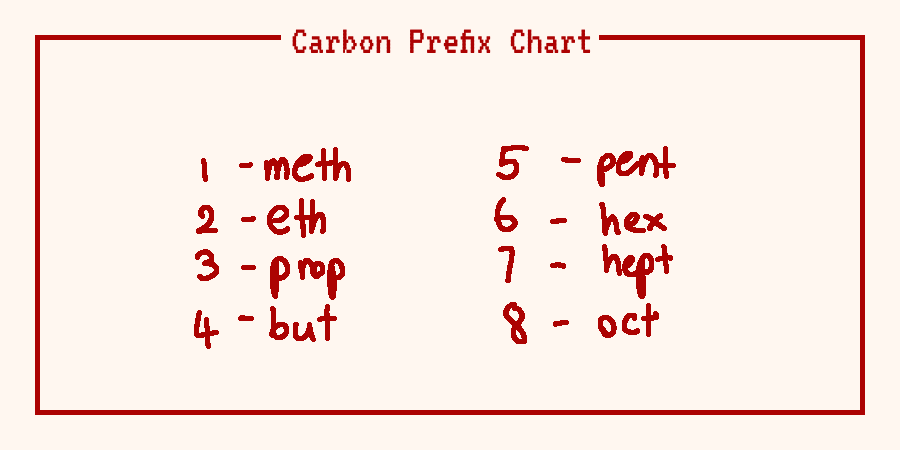 Carbon Prefix Chart
1 - meth
2 - eth
3 - prop
4 - but
5 - pent
6 - hex
7 - hept
8 - oct